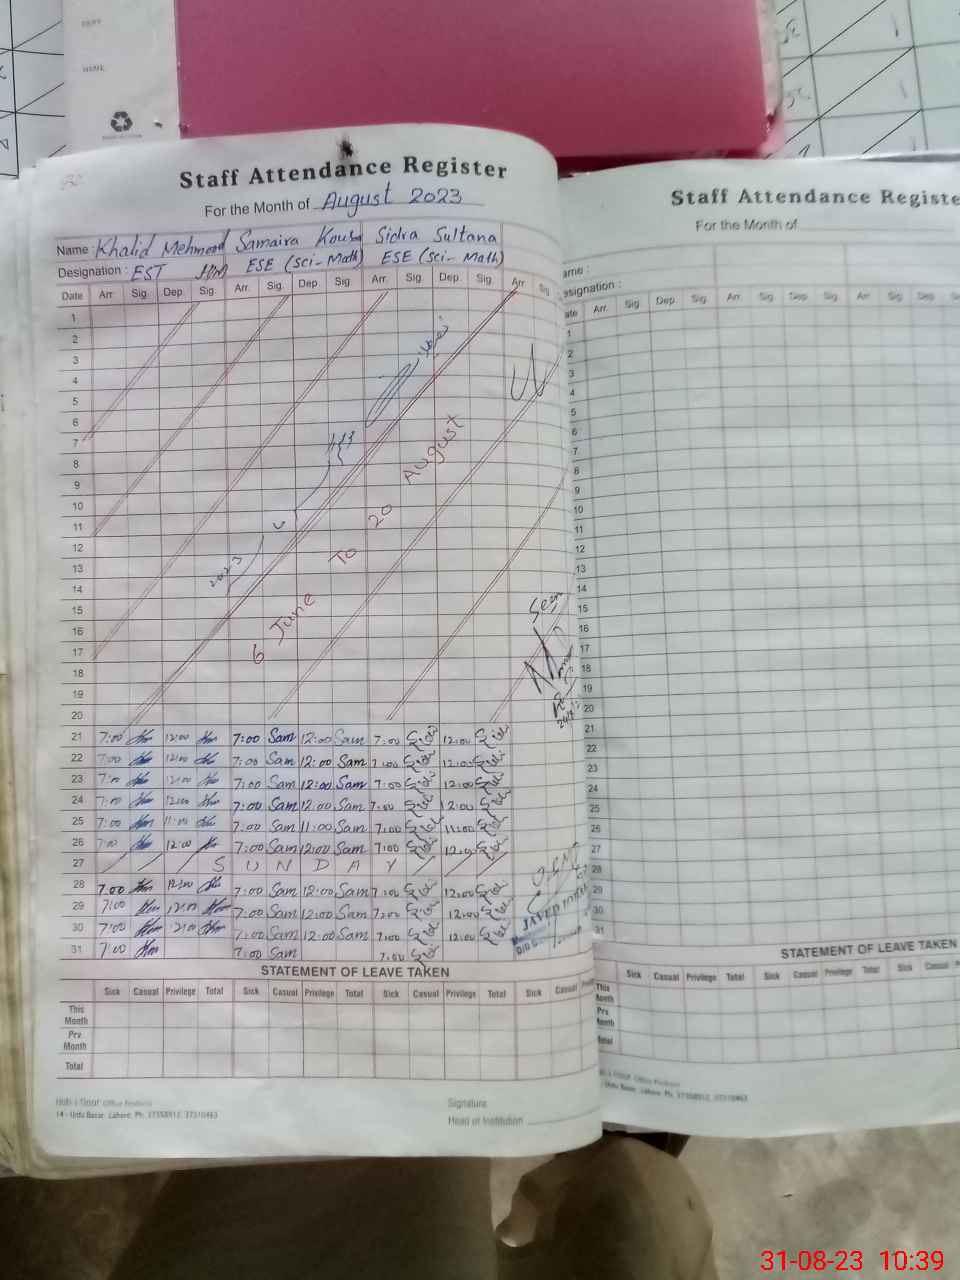 NAME
Staff Attendance Register
For the Month of August 2023
Name : Khalid Mehmood Samaira Kousar Sidra Sultana
Designation : EST HM ESE (Sci-Math) ESE (sci-Math)
Date Arr. Sig. Dep. Sig. Arr. Sig. Dep. Sig. Arr. Sig. Dep. Sig. Arr. Sig.
1
2
3
4
5
6
7
8
9
10
11
12
13
14
15
16
17
18
19
20
6 June To 20 August
2023
Seen
21 7:00 Hm 12:00 Hm 7:00 Sam 12:00 Sam 7:00 12:00
22 7:00 Hm 12:00 Hm 7:00 Sam 12:00 Sam 7:00 12:00
23 7:00 Hm 12:00 Hm 7:00 Sam 12:00 Sam 7:00 12:00
24 7:00 Hm 12:00 Hm 7:00 Sam 12:00 Sam 7:00 12:00
25 7:00 Hm 11:00 Hm 7:00 Sam 11:00 Sam 7:00 11:00
26 7:00 Hm 12:00 Hm 7:00 Sam 12:00 Sam 7:00 12:00
27 S U N D A Y
28 7:00 Hm 12:00 Hm 7:00 Sam 12:00 Sam 7:00 12:00
29 7:00 Hm 12:00 Hm 7:00 Sam 12:00 Sam 7:00 12:00
30 7:00 Hm 12:00 Hm 7:00 Sam 12:00 Sam 7:00 12:00
31 7:00 Hm 7:00 Sam 7:00
STATEMENT OF LEAVE TAKEN
Sick Casual Privilege Total Sick Casual Privilege Total Sick Casual Privilege Total Sick Casual
This Month
Prv Month
Total
14 - Urdu Bazar, Lahore. Ph. 37358512, 37310463
Signature
Head of Institution
Staff Attendance Registe
For the Month of
ame :
esignation :
ate Arr. Sig. Dep. Sig. Arr. Sig. Dep. Sig. Arr. Sig. Dep.
1
2
3
4
5
6
7
8
9
10
11
12
13
14
15
16
17
18
19
20
21
22
23
24
25
26
27
28
29
30
31
STATEMENT OF LEAVE TAKEN
Sick Casual Privilege Total Sick Casual Privilege Total Sick Casual
This Month
Prv Month
Total
Urdu Bazar, Lahore. Ph. 37358512, 37310463
31-08-23 10:39